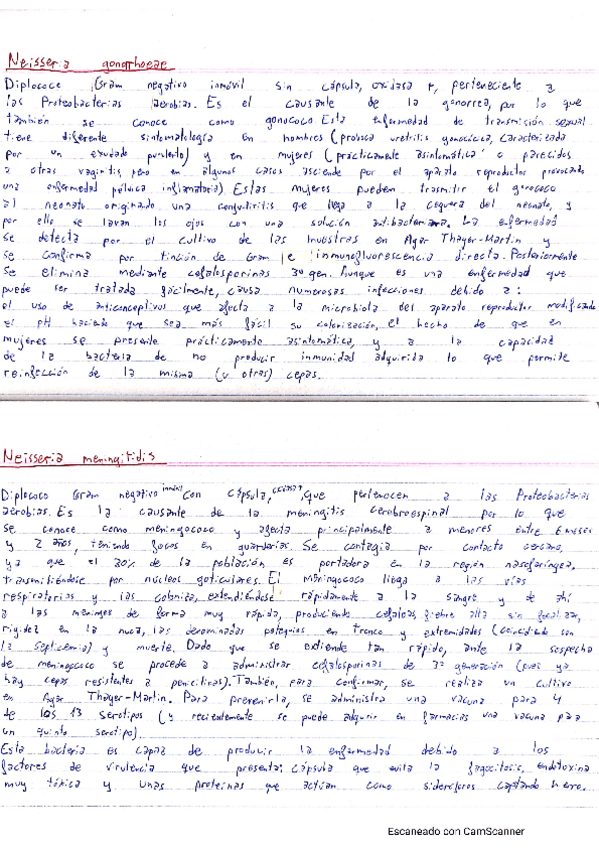 Neisseria gonorrhoeae
Diplococo Gram negativo inmóvil sin cápsula, oxidasa +, perteneciente a
las Proteobacterias aerobias. Es el causante de la gonorrea, por lo que
también se conoce como gonococo. Esta enfermedad de transmisión sexual
tiene diferente sintomatología en hombres (provoca uretritis gonocócica, caracterizada
por un exudado purulento) y en mujeres (prácticamente asintomática o parecidos
a otras vaginitis, pero en algunos casos asciende por el aparato reproductor provocando
una enfermedad pélvica inflamatoria). Estas mujeres pueden trasmitir el gonococo
al neonato originando una conjuntivitis que llega a la ceguera del neonato, y
por ello se lavan los ojos con una solución antibacteriana. La enfermedad
se detecta por el cultivo de las muestras en Agar Thayer-Martin y
se confirma por tinción de Gram e inmunofluorescencia directa. Posteriormente
se elimina mediante cefalosporinas 3ª gen. Aunque es una enfermedad que
puede ser tratada fácilmente, causa numerosas infecciones debido a:
el uso de anticonceptivos que afecta a la microbiota del aparato reproductor modificando
el pH haciendo que sea más fácil su colonización, el hecho de que en
mujeres se presente prácticamente asintomática, y a la capacidad
de la bacteria de no producir inmunidad adquirida lo que permite
reinfección de la misma (u otras) cepas.
Neisseria meningitidis
Diplococo Gram negativo inmóvil con cápsula, que pertenecen a las Proteobacterias
aerobias. Es la causante de la meningitis cerebroespinal por lo que
se conoce como meningococo y afecta principalmente a menores entre 6 meses
y 2 años, teniendo focos en guarderías. Se contagia por contacto cercano,
ya que el 20% de la población es portadora en la región nasofaríngea,
transmitiéndose por núcleos goticulares. El meningococo llega a las vías
respiratorias y las coloniza, extendiéndose rápidamente a la sangre y de ahí
a las meninges de forma muy rápida, produciendo cefaleas, fiebre alta sin focalizar,
rigidez en la nuca, las denominadas petequias en tronco y extremidades (coincidiendo con
la septicemia) y muerte. Dado que se extiende tan rápido, ante la sospecha
de meningococo se procede a administrar cefalosporinas de 3ª generación (pues ya
hay cepas resistentes a penicilinas). También, para confirmar, se realiza un cultivo
en Agar Thayer-Martin. Para prevenirla, se administra una vacuna para 4
de los 13 serotipos (y recientemente se puede adquirir en farmacias una vacuna para
un quinto serotipo).
Esta bacteria es capaz de producir la enfermedad debido a los
factores de virulencia que presenta: cápsula que evita la fagocitosis, endotoxina
muy tóxica y unas proteínas que actúan como sideróforos captando hierro.
Escaneado con CamScanner